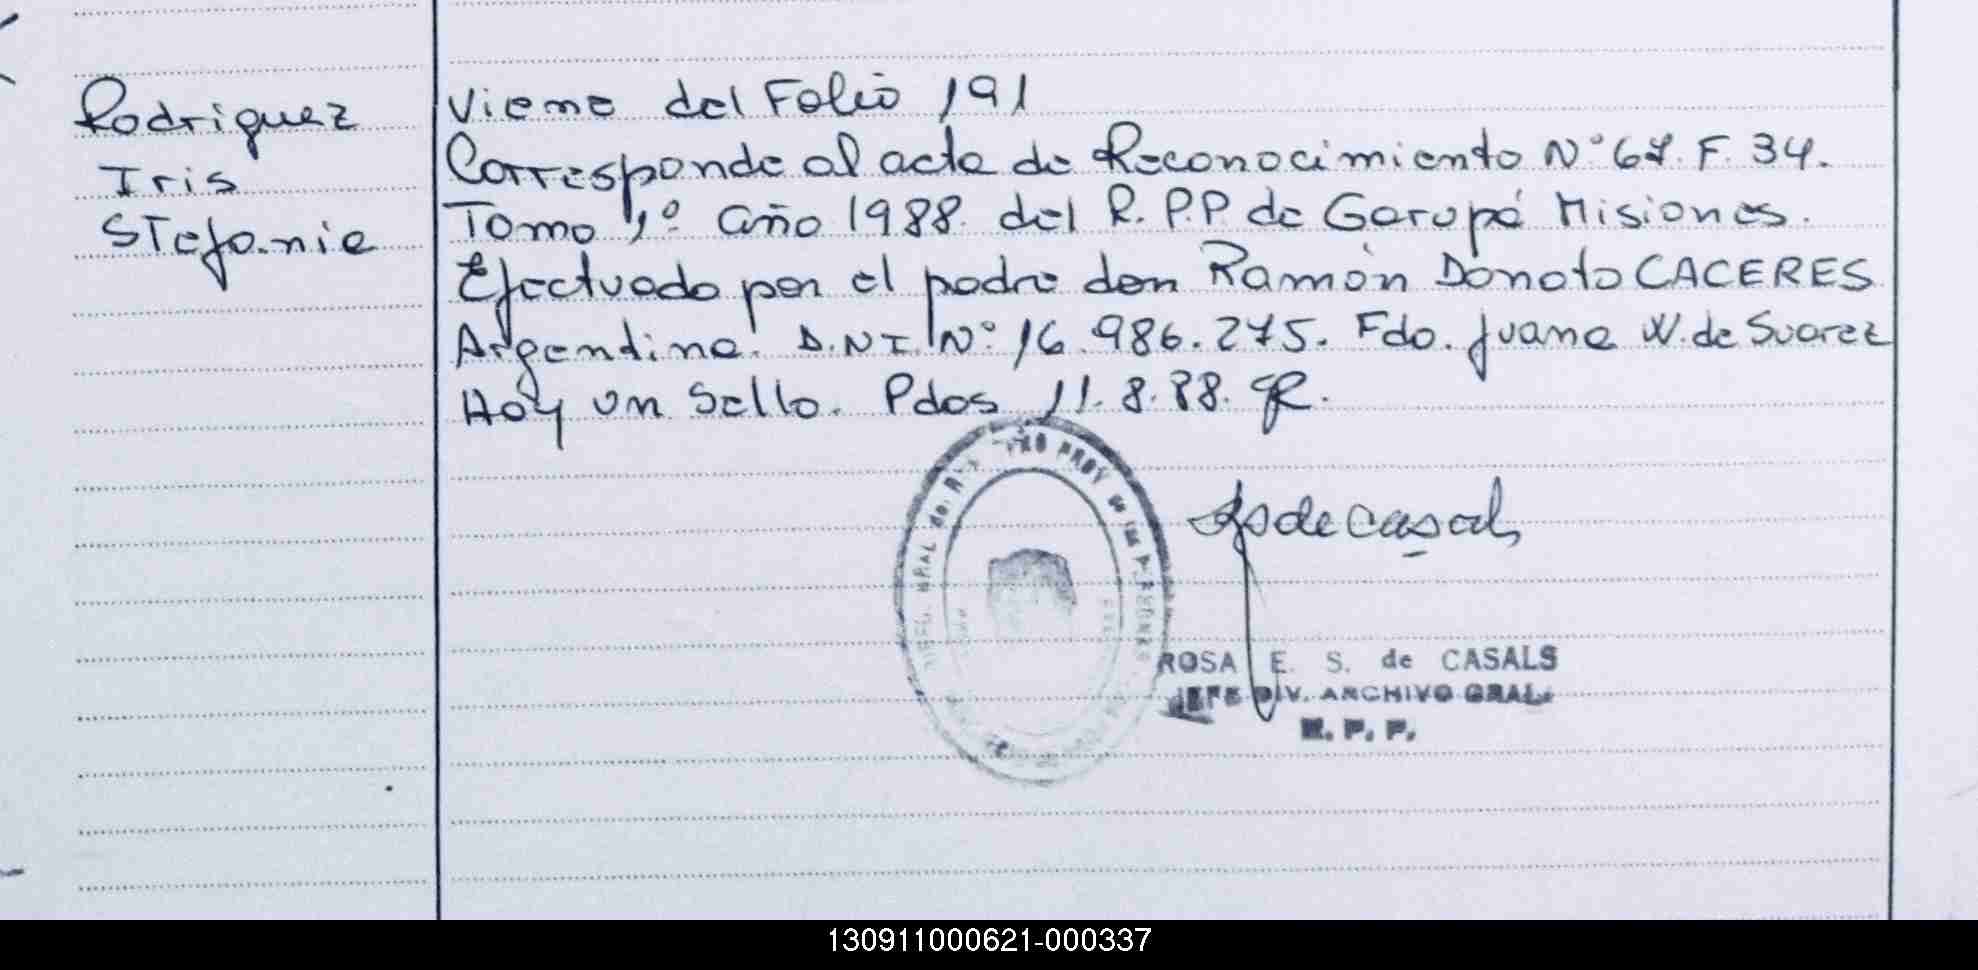 Rodriguez
Iris
Stefanie
Viene del Folio 191
Corresponde al acta de Reconocimiento N° 67. F. 34.
Tomo 1° año 1988. del R.P.P de Garupá Misiones.
Efectuado por el padre don Ramón Donato CACERES
Argentino. D.N.I. N° 16.986.275. Fdo. Juana W. de Suarez
Hay un Sello. Pdos 11.8.88.
de Casals
ROSA E. S. de CASALS
JEFE DIV. ARCHIVO GRAL.
R. P. P.
130911000621-000337